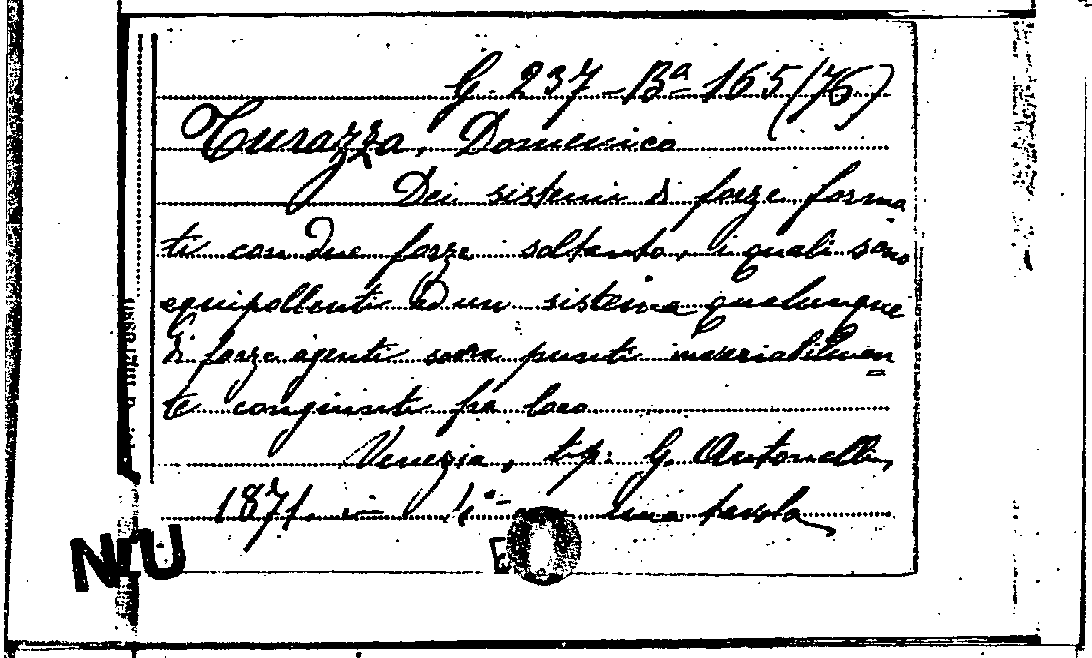 G. 237 - Bª 165 (76)
Turazza, Domenico
Dei sistemi di forze forma
ti con due forze soltanto, i quali sono
equipollenti ad un sistema qualunque
di forze agenti sovra punti invariabilmen
te congiunti fra loro
Venezia, tip: G. Antonelli,
1871. in 4° - una tavola
N/U
E